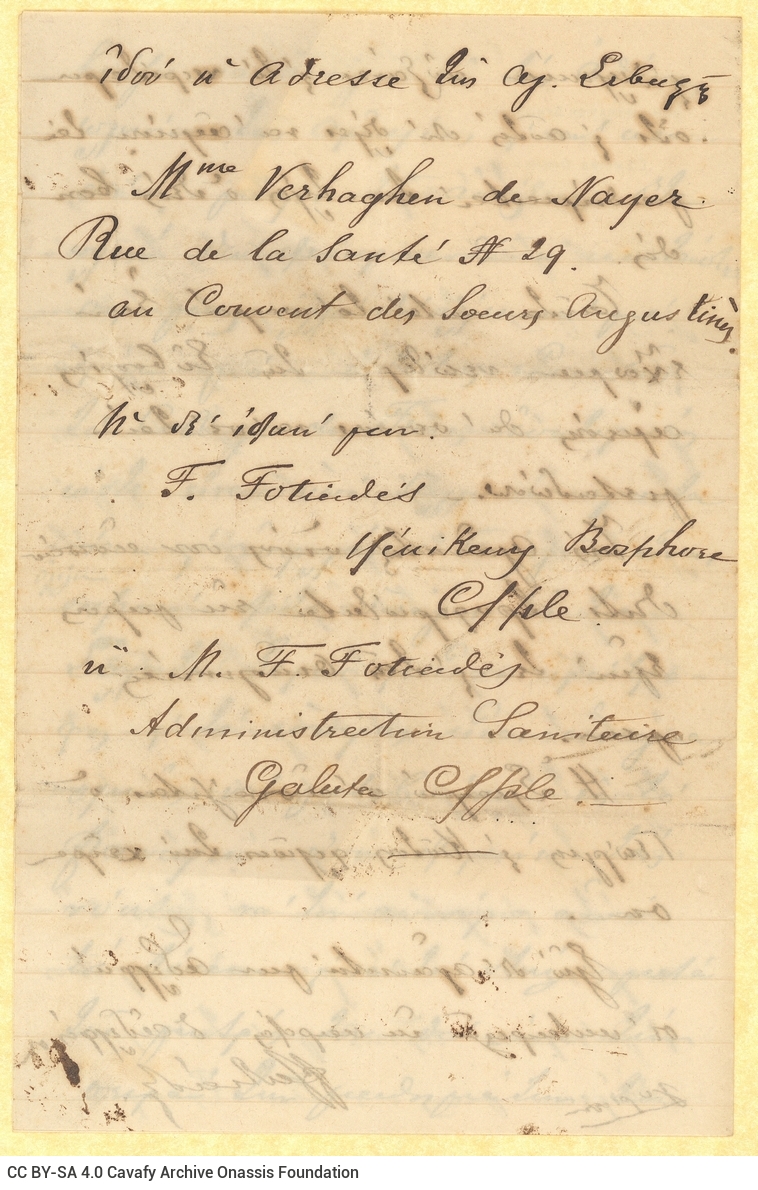 ἰδού ἡ adresse τῆς ἀγ.
Mme Verhaghen de Nayer
Rue de la Santé N 29.
au Couvent des Soeurs Augustines.
ἡ δέ ἰδική μου.
F. Fotiadés
Yénikeuy Bosphore
C/ple
ἤ M. F. Fotiadés
Administration Sanitaire
Galata C/ple.
CC BY-SA 4.0 Cavafy Archive Onassis Foundation